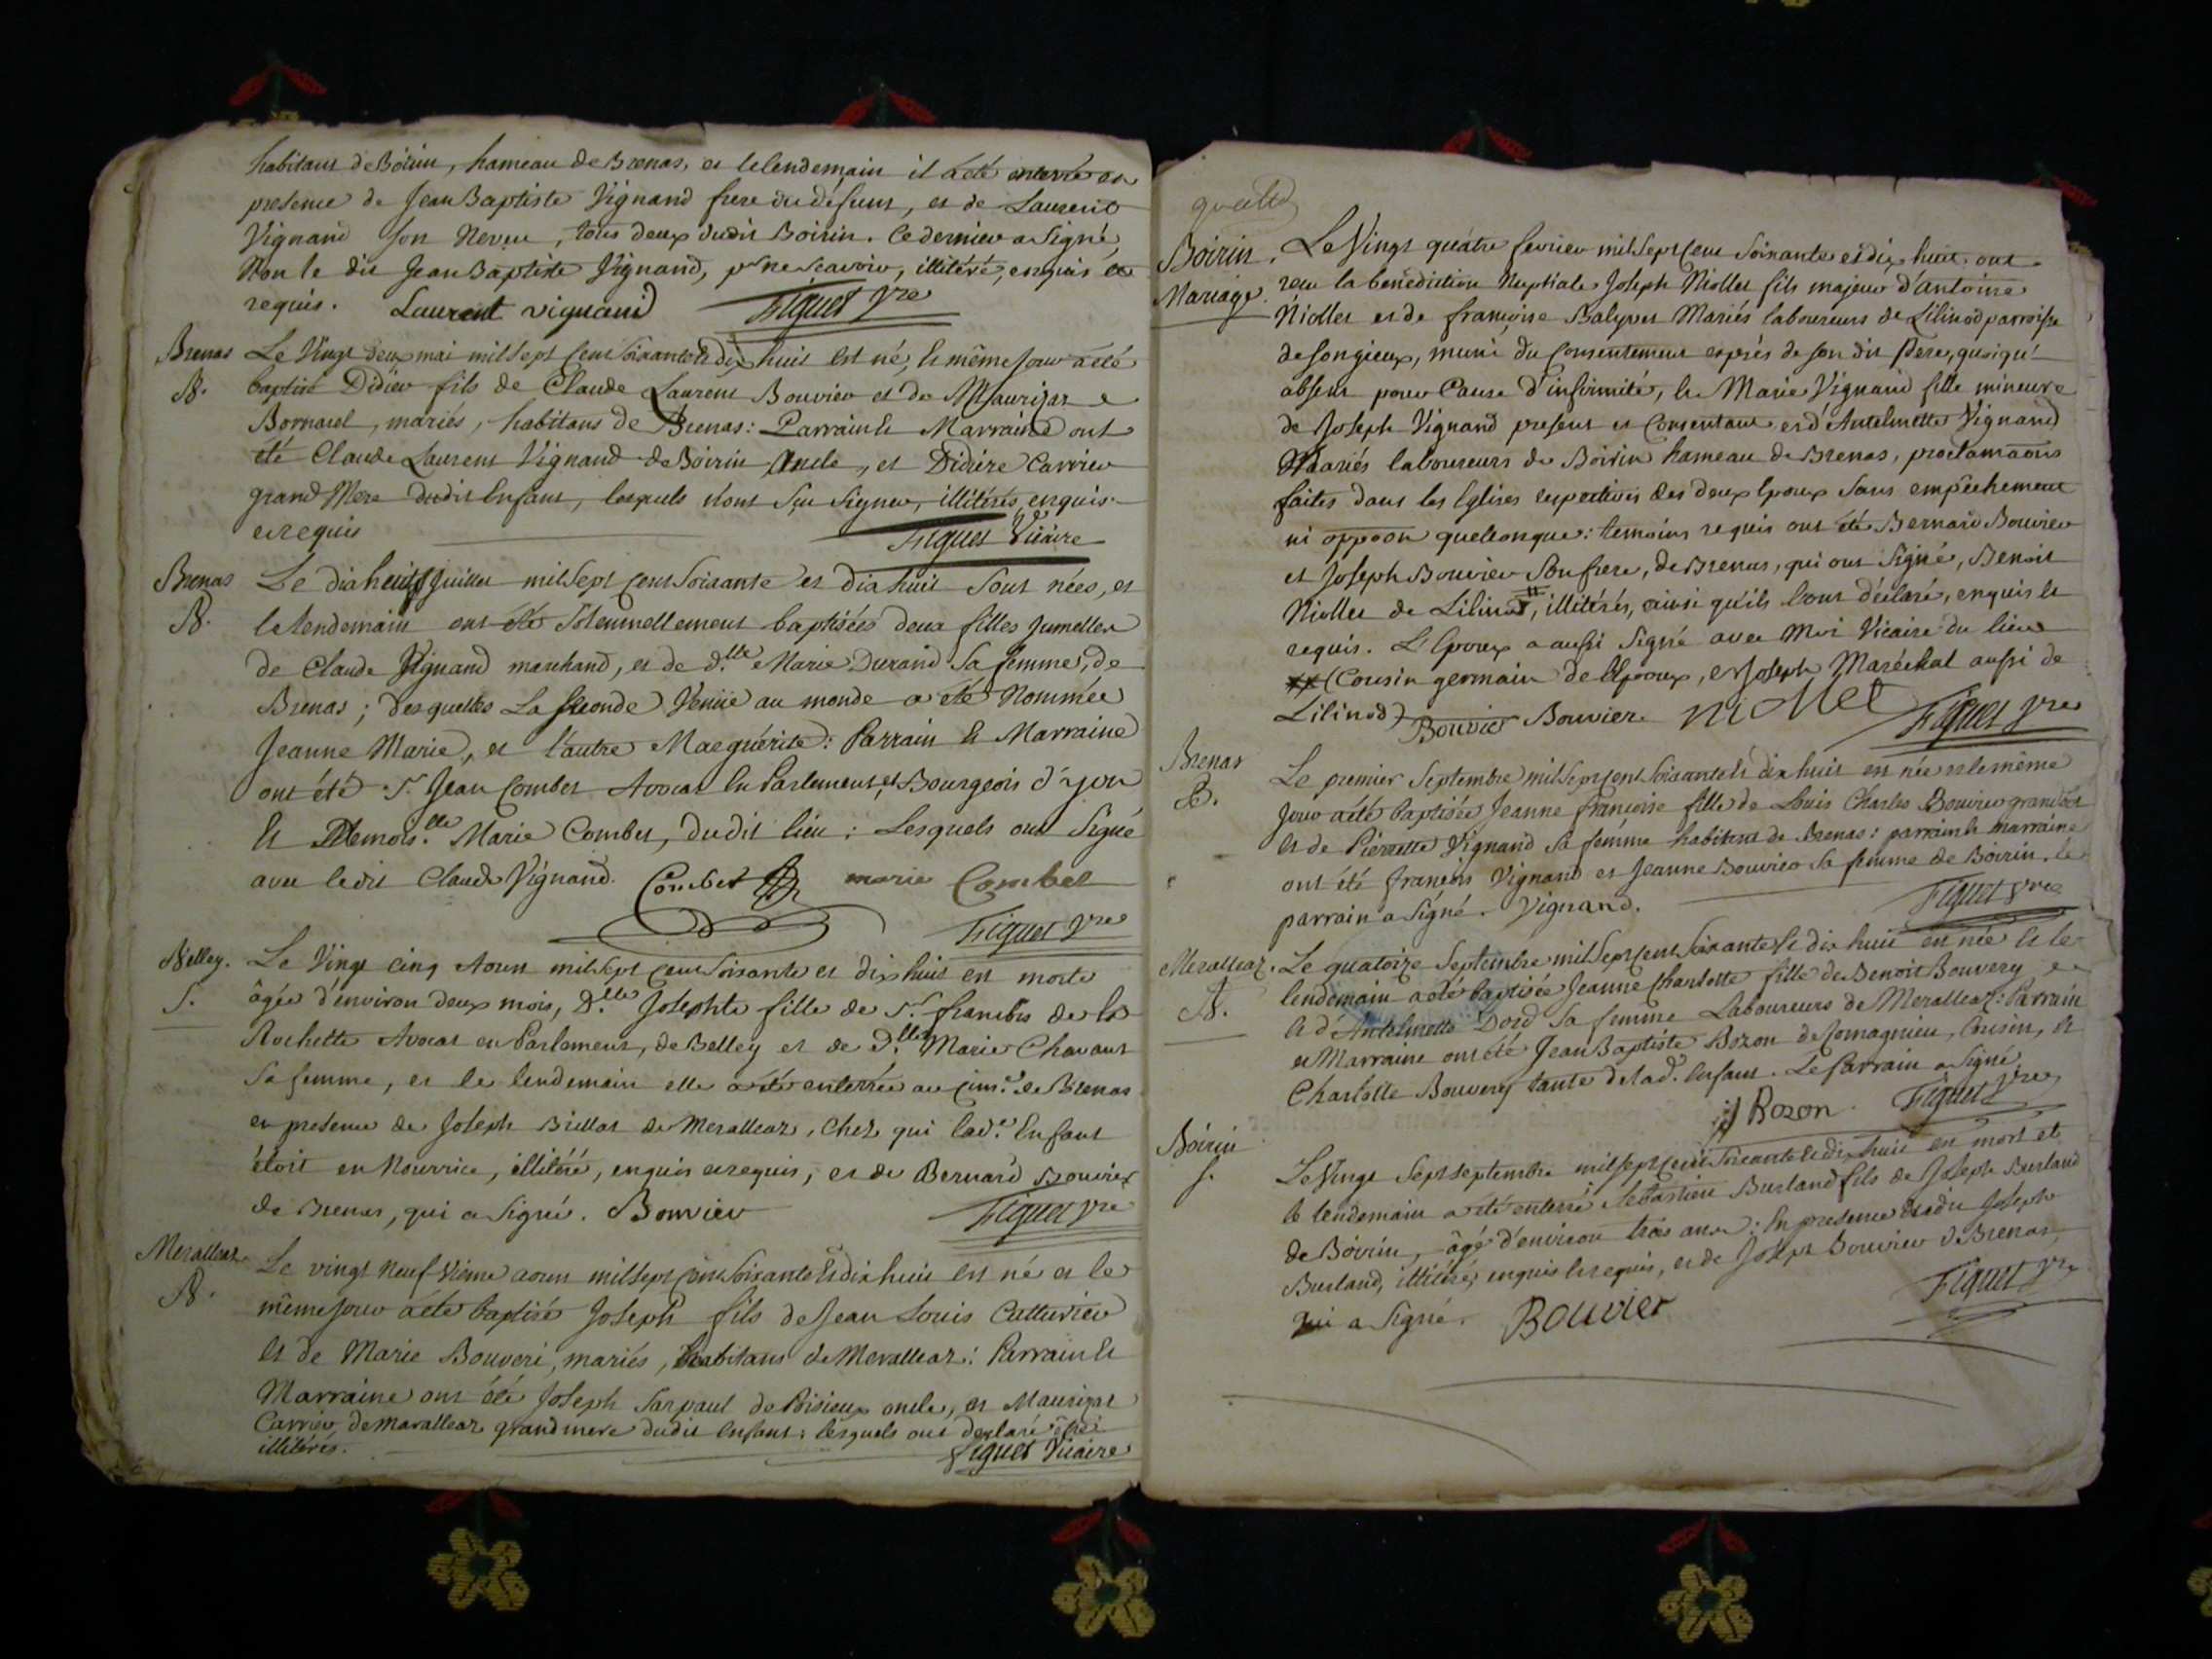 habitant de Boirin, hameau de Brenas, et le lendemain il a été enterré en
presence de Jean Baptiste Vignand frere du défunt, et de Laurent
Vignand son Neveu, tous deux dudit Boirin. Ce dernier a signé,
Non le dit Jean Baptiste Vignand, pr ne scavoir, illitéré, enquis et
requis. Laurent vignand Figuet Vre
Brenas Le Vingt deux mai mil sept cent soixante et dix huit est né, le même jour a été
B. baptisé Didier fils de Claude Laurent Bouvier et de Maurizaz
Bornarel, mariés, habitans de Brenas: Parrain et Marraine ont
été Claude Laurent Vignand de Boirin Oncle, et Didière Carrier
grand Mere dudit Enfant, lesquels n'ont sçu signer, illitérés, enquis
et requis Figuet Vicaire
Brenas Le dix huit Juillet mil sept cent soixante et dix huit sont nées, et
B. le lendemain ont été solemnellement baptisées deux filles jumelles
de Claude Vignand marchand, et de d.lle Marie Durand sa femme, de
Brenas; desquelles La seconde Venüe au monde a été Nommée
Jeanne Marie, et l'autre Marguérite: Parrain et Marraine
ont été S.r Jean Combet Avocat en Parlement, et Bourgeois d'yon
et Demois.lle Marie Combet, dudit lieu: Lesquels ont signé
avec ledit Claude Vignand. Combet marie Combet
Figuet Vre
Belley. Le Vingt cinq Aoust mil sept cent soixante et dix huit est morte
S. âgée d'environ deux mois, D.lle Josephte fille de S.r françois de la
Rochette Avocat en Parlement, de Belley et de D.lle Marie Chavant
sa femme, et le lendemain elle a été enterrée au cim.re de Brenas
en presence de Joseph Billot de Meralleaz, Chez qui lad.e Enfant
étoit en Nourrice, illitéré, enquis et requis, et de Bernard Bouvier
de Brenas, qui a signé. Bouvier Figuet Vre
Meralleaz Le vingt Neuf Vieme aoust mil sept cent soixante et dix huit est né et le
B. même jour a été baptisé Joseph fils de Jean Louis Cutturier
et de Marie Bouveri, mariés, habitans de Meralleaz: Parrain et
Marraine ont été Joseph Sarpaul de Poisieux oncle, et Maurizaz
Carrier de Maralleaz grand mere dudit Enfant: lesquels ont declaré être
illitérés. Figuet Vicaire
Boirin. Le Vingt quatre fevrier mil sept cent soixante et dix huit ont
Mariage. reçu la benédiction Nuptiale Joseph Niollet fils majeur d'Antoine
Niollet et de françoise Balyvet Mariés laboureurs de Lilinod parroisse
de songieux, muni du consentement exprés de son dit Pere, quoiqu'
absent pour Cause d'infirmité, et Marie Vignand fille mineure
de Joseph Vignand present et Consentant et d'Antelmette Vignand
Mariés laboureurs de Boirin hameau de Brenas, proclamaons
faites dans les Eglises respectives des deux Epoux sans empêchement
ni oppoon quelconque: temoins requis ont été Bernard Bouvier
et Joseph Bouvier son frere, de Brenas, qui ont signé, Benoit
Niollet de Lilinod, illitérés, ainsi qu'ils l'ont déclaré, enquis et
requis. L'Epoux a aussi signé avec Moi Vicaire du lieu
(Cousin germain de l'Epoux, et Joseph Maréchal aussi de
Lilinod) Bouvier Bouvier niollet Figuet Vre
Brenas Le premier Septembre mil sept cent soixante et dix huit est née et le même
B. jour a été baptisée Jeanne françoise fille de Louis Charles Bouvier grandset
et de Pierrette Vignand sa femme habitans de Brenas: parrain et marraine
ont été françois Vignand et Jeanne Bouvier sa femme de Boirin. le
parrain a signé. Vignand. Figuet Vre
Meralleaz. Le quatorze Septembre mil sept cent soixante et dix huit est née et le
B. lendemain a été baptisée Jeanne Charlotte fille de Benoit Bouvery
et d'Antelmette Dord sa femme Laboureurs de Meralleaz: Parrain
et Marraine ont été Jean Baptiste Bozon de Romagnieu, Cousin, et
Charlotte Bouvery tante de lad. Enfant. Le Parrain a signé
j Bozon. Figuet Vre
Boirin Le Vingt Sept septembre mil sept cent soixante et dix huit est mort et
S. le lendemain a été enterré Sebastien Burland fils de Joseph Burland
de Boirin, âgé d'environ trois ans: En presence dudit Joseph
Burland, illitéré, enquis et requis, et de Joseph Bouvier de Brenas,
qui a signé. Bouvier Figuet Vre